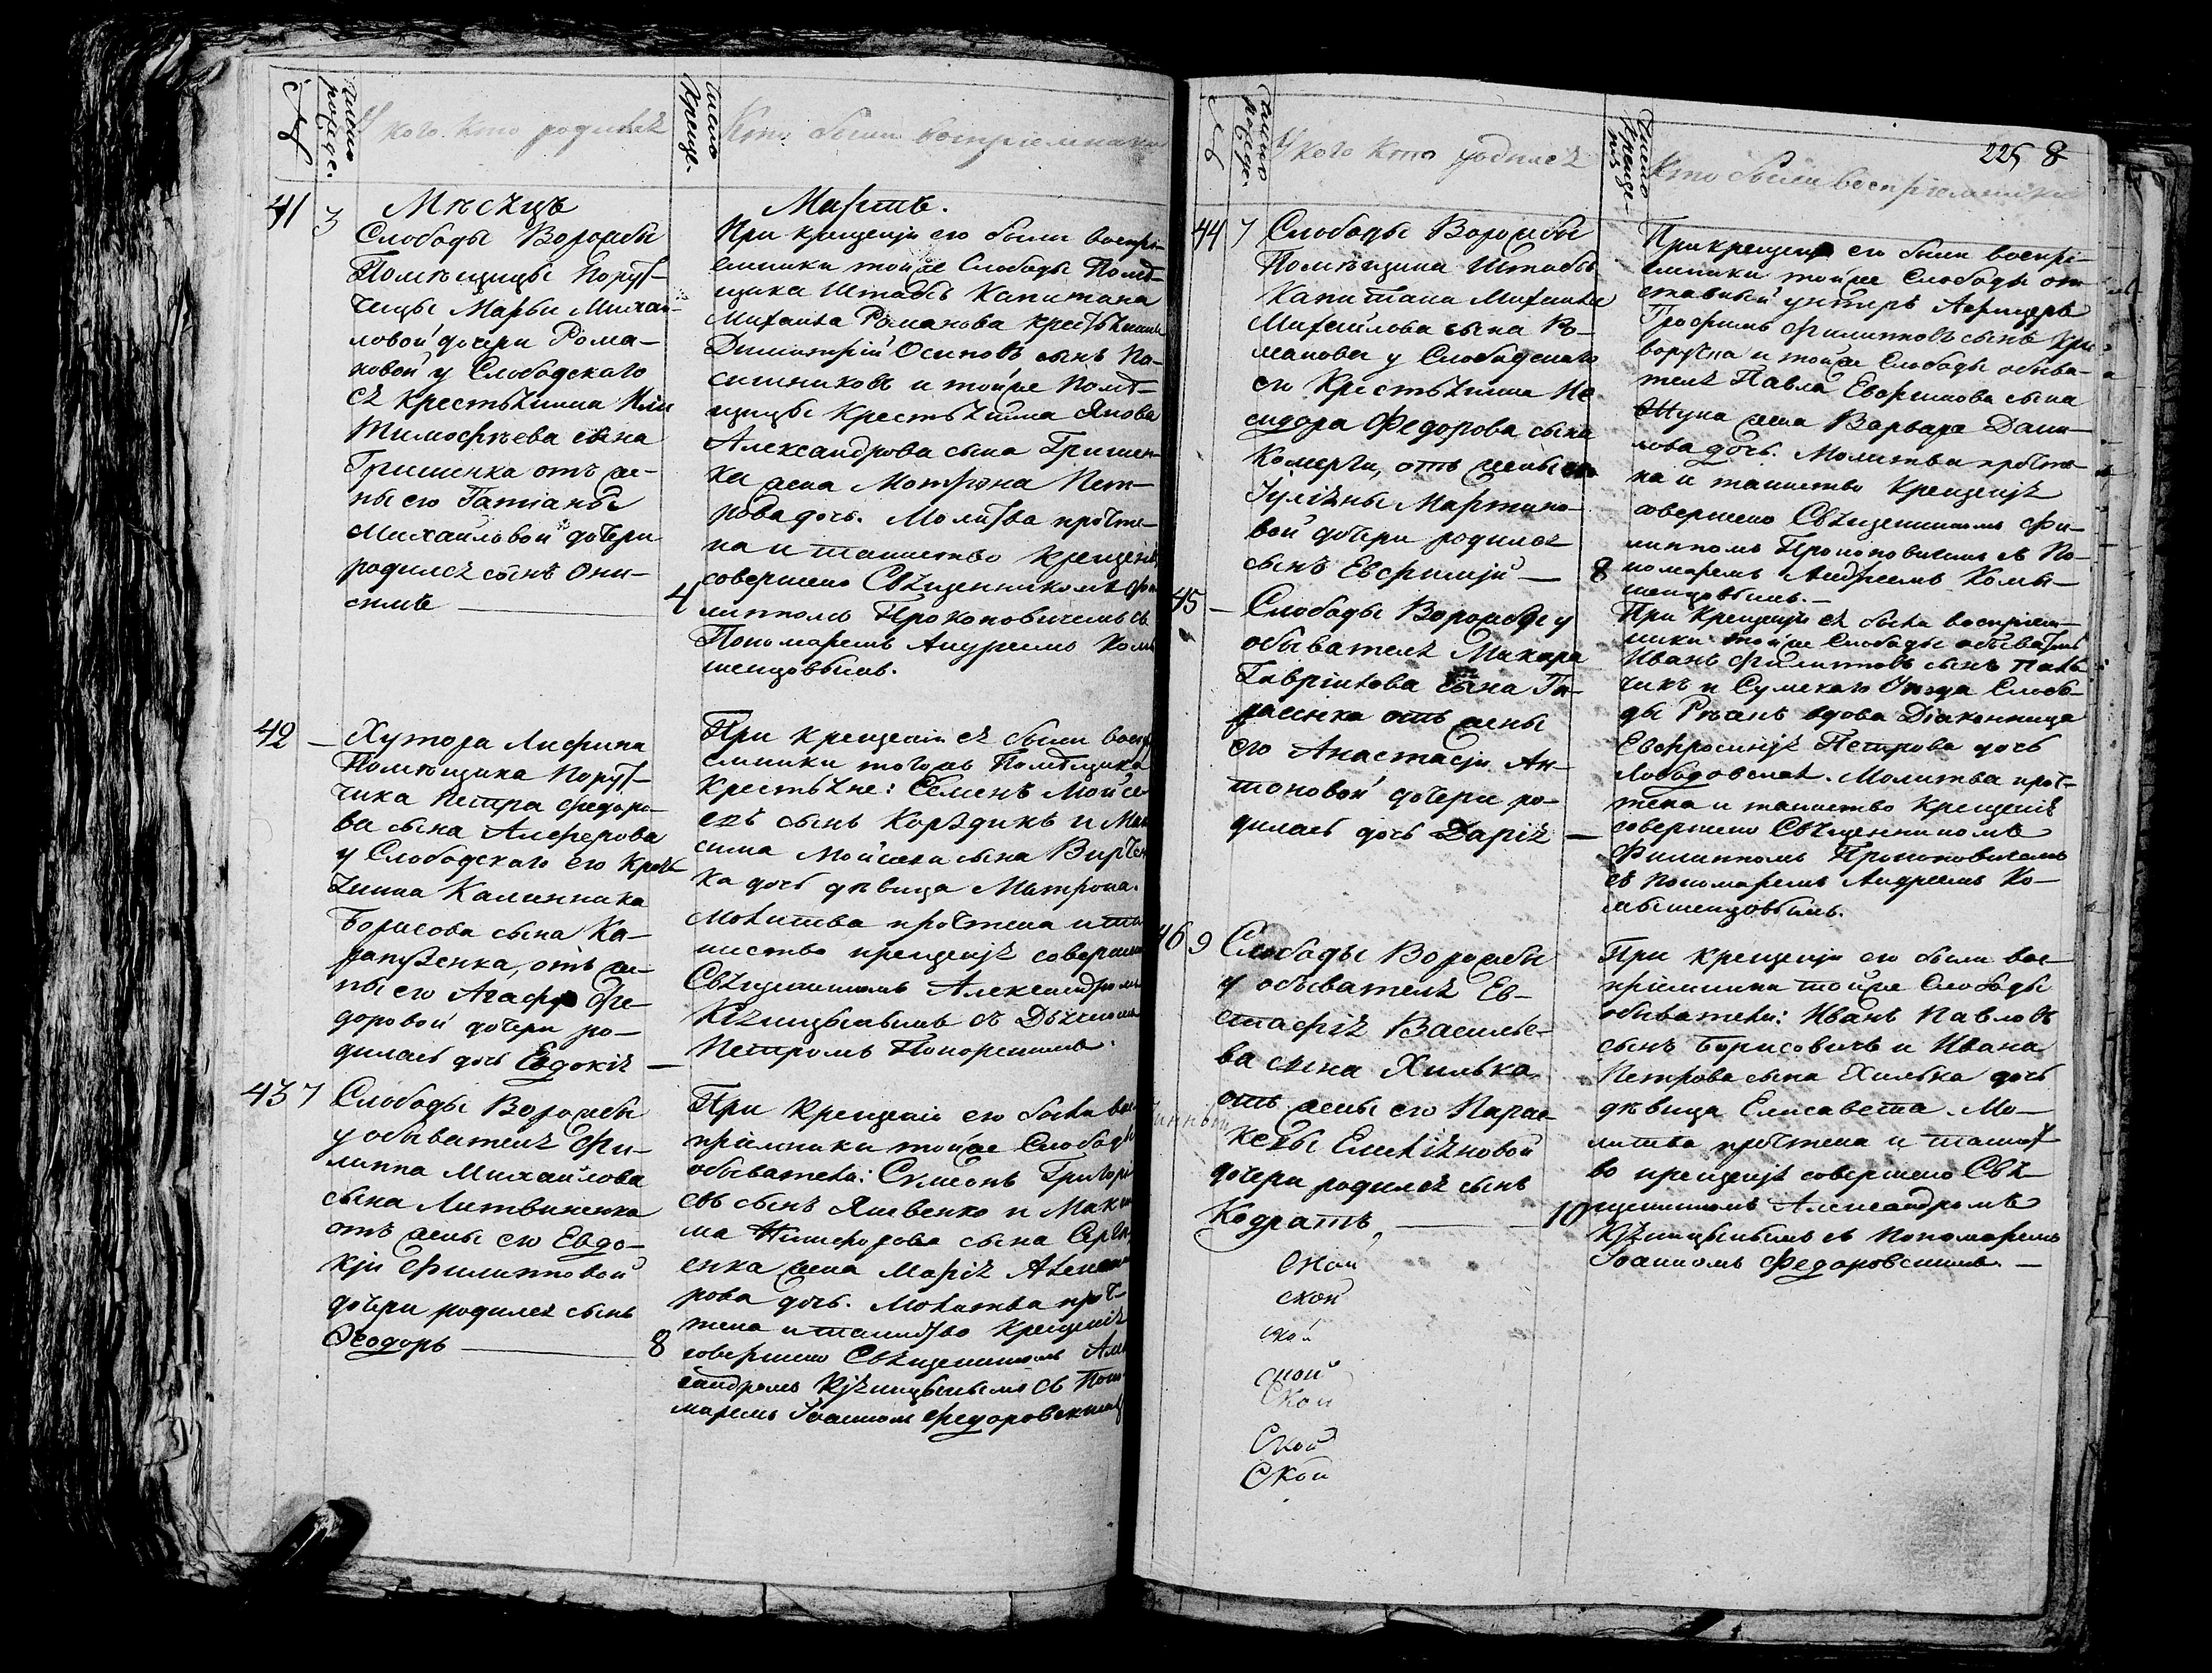 №
Число рожде.
У кого кто родился
Число Креще.
Кто были восприемники
Мѣсяцъ
Мартъ.
41 3
Слободы Ворожбы
Помѣщицы Пору-
чицы Марьи Михаи-
ловой дочери Рома-
новой у Слободскаго
ея крестьянина
Тимофѣева сына
Гришенка отъ же-
ны его Татіаны
Михаиловой дочери
родился сынъ Они-
симъ
4
При крещеніи его были воспрі-
емники тойже Слободы Помѣ-
щика Штабсъ Капитана
Михаила Романова крестьянинъ
Димитрій Осиповъ сынъ По-
сишниковъ и тойже Помѣ-
щицы Крестьянина Якова
Александрова сына Гришен-
ка жена Мотрона Пет-
рова дочь. Молитва прочте-
на и таинство крещенія
совершено Священникомъ Фи-
липпомъ Прокоповичемъ съ
Пономаремъ Андреемъ Комы-
шенцовымъ.
42 —
Хутора Лифина
Помѣщика Пору-
чика Петра Федоро-
ва сына Алферова
у Слободскаго его Кресть-
янина Калинника
Борисова сына Ка-
рапузенка, отъ же-
ны его Агафіи Фе-
доровой дочери ро-
дилась дочь Евдокія —
При крещеніи ея были воспрі-
емники тогожъ Помѣщика
Крестьяне: Семенъ Мойсе-
евъ сынъ Корѣдикъ и Мак-
сима Мойсеева сына Вирчен-
ка дочь дѣвица Матрона.
Молитва прочтена и та-
инство крещенія совершено
Священникомъ Александромъ
Кзницынымъ съ Дьячкомъ
Петромъ Понорскимъ.
43 7
Слободы Ворожбы
у обывателя Фи-
липпа Михайлова
сына Литвиненка
отъ жены его Евдо-
кіи Филипповой
дочери родился сынъ
Ѳеодоръ
8
При Крещеніи его были вос-
пріемники тойже Слободы
обыватели: Сѵмеонъ Григорі-
евъ сынъ Яковенко и Макси-
ма Никифорова сына Сергѣ-
енка жена Марія Алексан-
рова дочь. Молитва проч-
тена и таинство Крещенія
совершено Священникомъ Алек-
сандромъ Кзницынымъ съ Поно-
маремъ Іоанномъ Федоровскимъ
№
Число рожде.
У кого кто родился
Число Креще-нія
Кто были восприемники
225 8
44 7
Слободы Ворожбы
Помѣщика Штабсъ
Капитана Михаила
Михайлова сына Ро-
манова у Слободскаго
его Крестьянина Ис-
идора Федорова сына
Комерчи, отъ жены его
Іуліяны Мартино-
вой дочери родился
сынъ Евфимій —
8
При крещеніи его были воспрі-
емники тойже Слободы от-
ставный унтеръ Афицеръ
Трофимъ Филиповъ сынъ Кри-
воручка и тойже Слободы обыва-
теля Павла Евфимова сына
жена Варвара Дани-
лова дочь. Молитва прочте-
на и таинство Крещенія
совершено Священникомъ Фи-
липпомъ Прокоповичемъ съ По-
номаремъ Андреемъ Комы-
шенцовымъ. —
45 —
Слободы Ворожбы у
обывателя Макара
Гавріилова сына Та-
расенка отъ жены
его Анастасіи Ан-
тоновой дочери ро-
дилась дочь Дарія —
При Крещеніи ея были воспріем-
ники тойже Слободы обыватель
Иванъ Филиповъ сынъ Пала-
чикъ и Сумскаго Оѣзда Слобо-
ды Рѣчекъ вдова Діаконница
Евфросинія Петрова дочь
Лободовская. Молитва проч-
тена и таинство Крещенія
совершено Священникомъ
Филиппомъ Прокоповичемъ
съ пономаремъ Андреемъ Ко-
мышенцовымъ.
46 9
Слободы Ворожбы
у обывателя Ев-
стафія Василье-
ва сына Хилька
отъ жены его Парас-
кевы Емеліяновой
дочери родился сынъ
Кодратъ, —
10
При крещеніи его были вос-
пріемники тойже Слободы
обыватели: Иванъ Павловъ
сынъ Борисовичъ и Ивана
Петрова сына Хилька дочь
дѣвица Елисавета. Мо-
литва прочтена и таинст-
во крещенія совершено Свя-
щенникомъ Александромъ
Кзницынымъ съ Пономаремъ
Іоанномъ Федоровскимъ. —
ской
ской
ской
ской
Ской
Ской
Ской